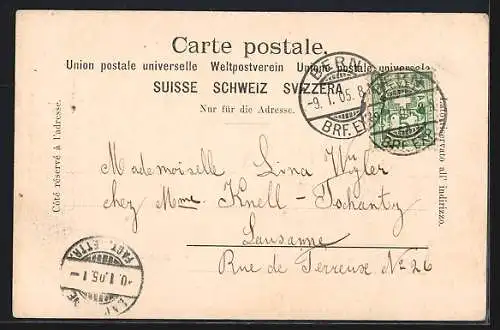 Carte postale.
Union postale universelle Weltpostverein Unione postale universale
SUISSE SCHWEIZ SVIZZERA
Nur für die Adresse.
Côté réservé à l'adresse.
Lato riservato all' indirizzo.
BERN
-9.I.05.8
BRF. EXP.
Mademoiselle Lina Wyler
chez Mme Knell-Tschantz
Lausanne
Rue de Terreux No 26
FACT. LETTR.